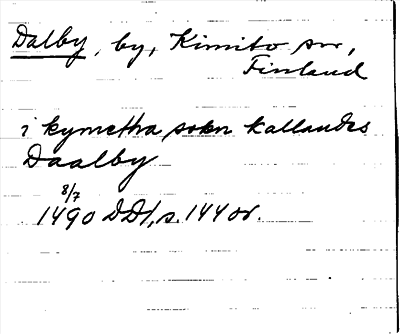 Dalby, by, Kimito sn,
Finland
i kymetha sokn kallandes
Daalby
8/7
1490 DD1, s. 144 or.